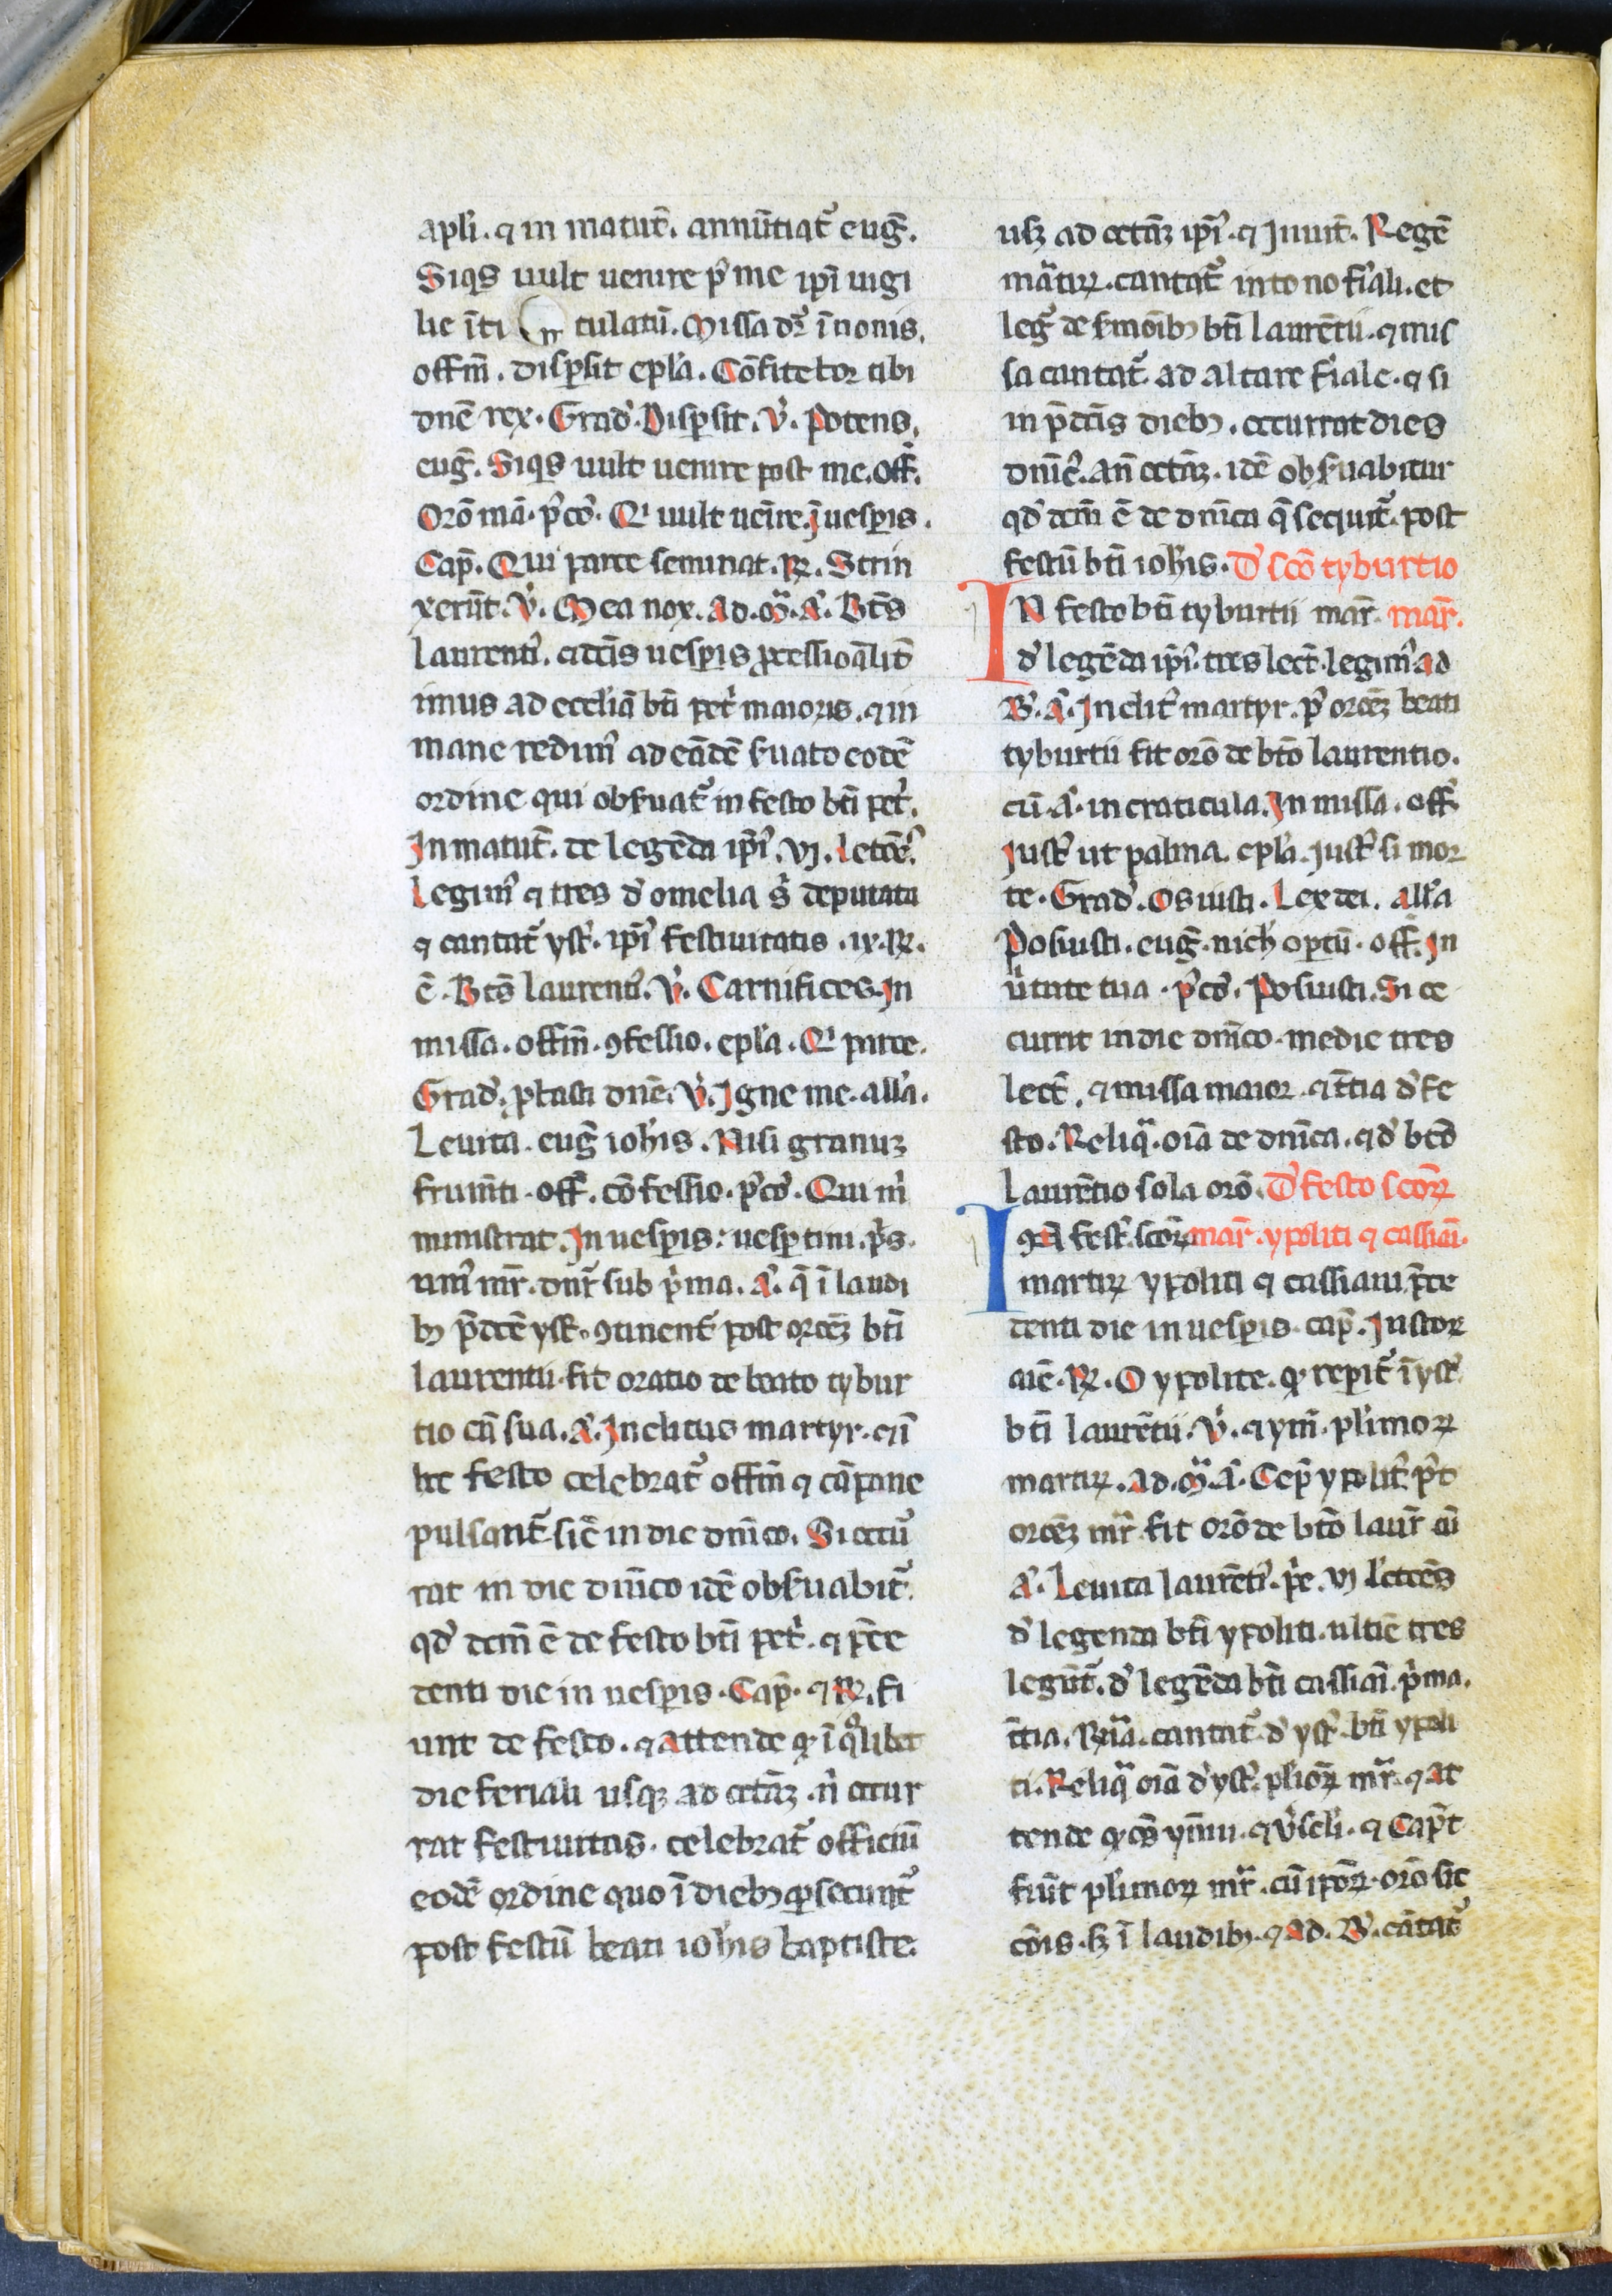 apl'i. ⁊ in matut̄. annūtiat᷑ eug̅.
Siq̇s uult uenire p᷒ me ip̄i uigi
lie īti tulatū. Missa d᷑ ī nonis.
offm̄. Disꝑsit epl'a. Cōfitebor tibi
dn̄e rex. Grad'. Disꝑsit. V̇. Potens.
eug̅. Siq̇s uult uenire post me. Off̄.
Orō mā. p᷒co᷒. Qi uult uēire. J̄ uesꝑis.
Cap̄. Qui parce seminat. ꝶ. Strin
xerūt. V̇. Mea nox. Ad. M̄. A᷒. Bt̄s
laurenti᷒. dictis uesꝑis ꝓcessioālit̄
imus ad eccl'iā bt̄i pet̓ maioris. ⁊ in
mane redim᷒ ad eādē s̓uato eodē
ordine qui obs̓uat᷑ in festo bt̄i pet̓.
In matut̄. de legēda ip̄i᷒. vj. lectōe᷒s
legim᷒ ⁊ tres d' omelia s̄ deputata
⁊ cantat᷑ yst̓. ip̄i᷒ festiuitatis. ix. ꝶ.
ē. Bt̄s laurenti᷒. V̇. Carnifices. In
missa. offm̄. ꝯfessio. epl'a. Qi parce.
Grad'. ꝓbasti dn̄e. V̇. Igne me. all'a.
Leuita. eug̅ ioh'is. Nisi granuꝫ
frum̄ti. off̄. cōfessio. p᷒co᷒. Qui m̓
ministrat. In uesꝑis: uesꝑtini. p̄s.
um᷒ mr̄. dnr̄ sub p̓ma. A᷒. q̄ ī laudi
bꝫ p̄dc̄e yst̓. ꝯtinent᷑ post or̄oēꝫ bt̄i
laurentii. fit oratio de beato tybur
tio cū sua. A᷒. Inclitus martyr. cui᷒
hic festo celebrat᷑ offm̄ ⁊ cāpane
pulsant᷑ sic̄ in die dn̄ico. Si occu᷑
rat in die dn̄ico idē obs̓uabit᷑.
qd' dcm̄ ē de festo bt̄i pet̓. ⁊ p̄ce
denti die in uesꝑis. Cap̄. ⁊ ꝶ. fi
unt de festo. ⁊ attende ꝙ ī qͦlibet
die feriali usqꝫ ad octāꝫ. n̓ occur
rat festiuitas. celebrat᷑ officiū
eodē ordine quo ī diebꝫ ꝓsecunt᷑
post festū beati ioh'is baptiste.
usꝫ ad octāꝫ ip̄i᷒. ⁊ Inuit̄. Regē
mār̄tiꝝ. cantat᷑ in tono fīali. et
leg᷑ de s̓moībꝫ bt̄i laurētii. ⁊ mis
sa cantat᷑. ad altare fīale. ⁊ si
in p̄dc̄is diebꝫ. occurrat dies
dn̄ic᷒. an̄ octāꝫ. idē obs̓uabitur
qd' dcm̄ ē de dn̄ica q̄ sequit᷑. post
festū bt̄i ioh'is. D' sc̄o tyburtio
IN festo bt̄i tyburtii mar̄. mar̄.
d' legēda ip̄i᷒. tres lect̄. legim᷒ ad
B̓. A᷒. Inclit᷒ martyr. p᷒ or̄oēꝫ beati
tyburtii fit orō de bt̄o laurentio.
cū. A᷒. in craticula. In missa. off̄.
Just᷒ ut palma. epl'a. Just᷒ si mor
te. Grad'. Os iusti. Lex dei. all'a
Posuisti. eug̅. nich' oꝑtū. off̄. In
u̓tute tua. p᷒co᷒. Posuisti. Si oc
currit in die dn̄ico. medie tres
lect̄. ⁊ missa maior. ⁊ t̄tia d' fe
sto. Reliq̄. oīa de dn̄ica. qd' bt̄o
laurētio sola orō. D' festo sc̄oꝝ
IN fest᷒. sc̄oꝝ mar̄. ypoliti ⁊ cassiāi.
martiꝝ ypoliti ⁊ cassiani p̄ce
denti die in uesꝑis. cap̄. Iustoꝝ
aīe. ꝶ. O ypolite. ꝙ reꝑit᷑ ī yst̓.
bt̄i laurētii. V̇. ⁊ ym̄. pl'imoꝝ
martiꝝ. Ad. M̄. A᷒. Cep̄ ypolit᷒. p᷒t
or̄oēꝫ mr̄. fit orō de bt̄o laur̄. cū
A᷒. Leuita laurēti᷒. p̓e. vj l'ctoēs
d' legenda bt̄i ypoliti. ultīe tres
legūt᷑. d' legēda bt̄i cassiāi. p̓ma.
t̄tia. cantat᷑. d' yst̓. bt̄i ypoli
ti. Reliq̄ oīa d' yst̓. pl'ioꝝ mr̄. ⁊ at
tende ꝙ ym̄ni. ⁊ u̓sicl'i. ⁊ Cap̄t
fiūt pl'imoꝝ mr̄. cū ip̄oꝝ. orō sit
cōis. sꝫ ī laudibꝫ. ⁊ ad. B̓. cātat᷑